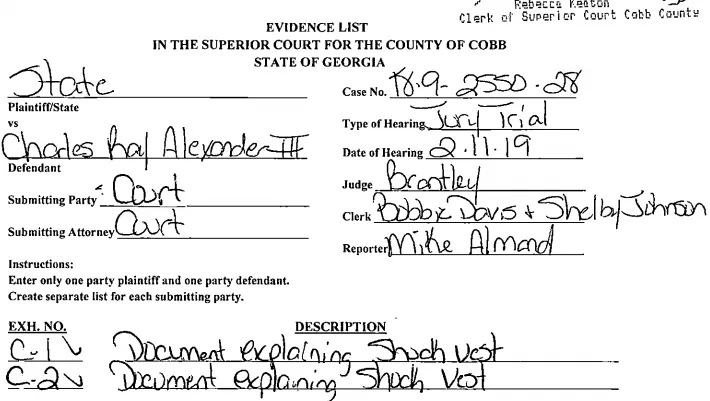 Rebecca Keaton
Clerk of Superior Court Cobb County
EVIDENCE LIST
IN THE SUPERIOR COURT FOR THE COUNTY OF COBB
STATE OF GEORGIA
State
Plaintiff/State
vs
Charles Ray Alexander III
Defendant
Submitting Party Court
Submitting Attorney Court
Case No. 18-9-2550-28
Type of Hearing Jury Trial
Date of Hearing 2.11.19
Judge Brantley
Clerk Bobbie Davis + Shelby Johnson
Reporter Mike Almand
Instructions:
Enter only one party plaintiff and one party defendant.
Create separate list for each submitting party.
EXH. NO. DESCRIPTION
C-1 ✓ Document explaining Shock Vest
C-2 ✓ Document explaining Shock Vest